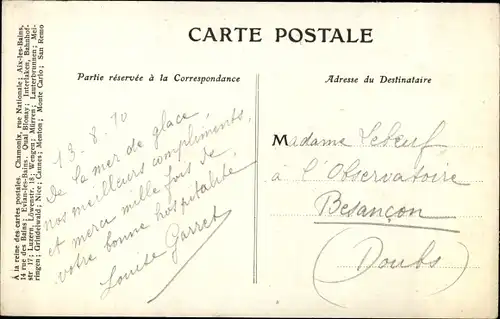 CARTE POSTALE
Partie réservée à la Correspondance
Adresse du Destinataire
À la reine des cartes postales, Chamonix, rue Nationale; Aix-les-Bains,
14 rue des Bains; Evian-les-Bains, Quai Blonay; Interlaken, Bahnhof-
str 17; Luzern, Löwenstr. 18; Wengen; Mürren; Lauterbrunnen; Mei-
ringen; Grindelwald; Nice; Cannes; Menton; Monte Carlo; San Remo
13.8.10
De la mer de glace,
nos meilleurs compliments,
et merci mille fois de
votre bonne hospitalité
Louise Garret
Madame Leboeuf
à l'Observatoire
Besançon
(Doubs)